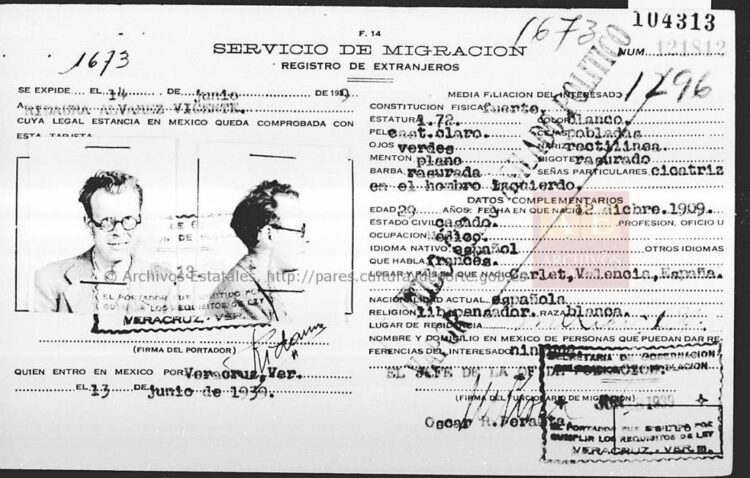 104313
F. 14
1673
1673
SERVICIO DE MIGRACION
NUM. 121812
REGISTRO DE EXTRANJEROS
1296
ASILADO POLITICO
SE EXPIDE EL 14 de junio DE 1939
RIBAURA ALVAREZ VICENTE.
CUYA LEGAL ESTANCIA EN MEXICO QUEDA COMPROBADA CON
ESTA TARJETA.
MEDIA FILIACION DEL INTERESADO
CONSTITUCION FISICA fuerte.
ESTATURA 1.72. COLOR blanco.
PELO cast.claro. CEJAS pobladas
OJOS verdes NARIZ rectilinea.
MENTON plano BIGOTE rasurado
BARBA rasurada SEÑAS PARTICULARES cicatriz
en el hombro izquierdo.
DATOS COMPLEMENTARIOS
EDAD 29 AÑOS. FECHA EN QUE NACIO 12 dicbre. 1909.
ESTADO CIVIL casado. PROFESION, OFICIO U
OCUPACION
IDIOMA NATIVO español OTROS IDIOMAS
QUE HABLA francés.
LUGAR Y PAIS EN QUE NACIO Carlet, Valencia, España.
NACIONALIDAD ACTUAL española
RELIGION libpensador. RAZA blanca.
LUGAR DE RESIDENCIA
NOMBRE Y DOMICILIO EN MEXICO DE PERSONAS QUE PUEDAN DAR RE-
FERENCIAS DEL INTERESADO
EL JEFE DE LA OF. DE POBLACION.
(FIRMA DEL FUNCIONARIO DE MIGRACION)
Oscar R. Peralta
EL PORTADOR FUE ADMITIDO
CUMPLIR LOS REQUISITOS DE LEY
VERACRUZ. VER.
(FIRMA DEL PORTADOR)
QUIEN ENTRO EN MEXICO POR Veracruz, Ver.
EL 13 de junio de 1939.
SECRETARIA DE GOBERNACION
POBLACION
JUN 1939
EL PORTADOR FUE
CUMPLIR LOS REQUISITOS DE LEY
VERACRUZ. VER.
© Archivos Estatales, http://pares.culturadeporte.gob.es
ARCHIVOS